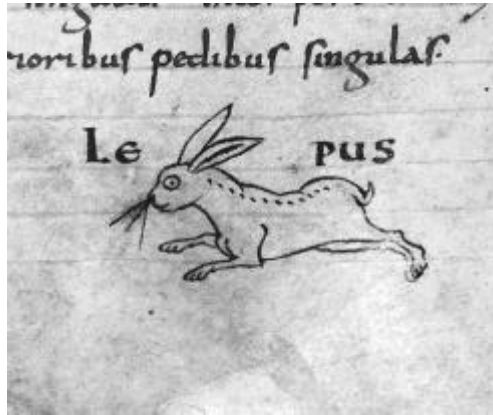 rioribus pedibus singulas.
Le pus